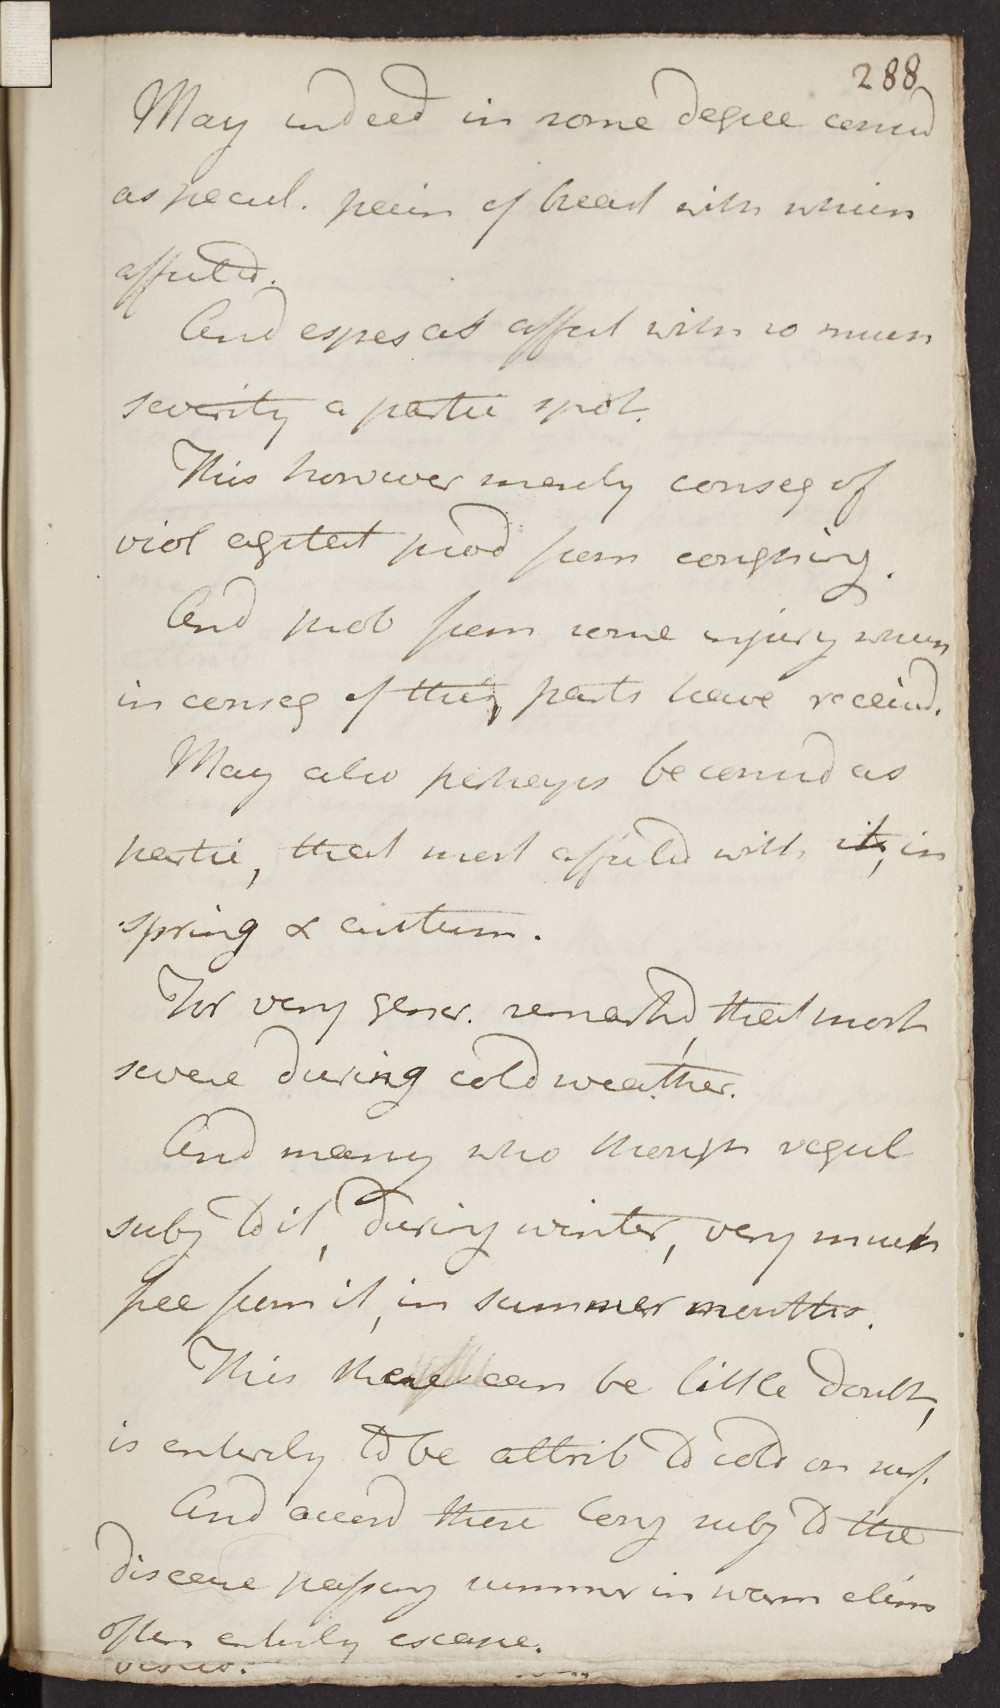 288
May indeed in some degree consid
as pecul. pain of head with which
affected.
And espes as affect with so much
severity a partic spot.
This however merely conseq of
viol agitat prod from coughing.
And prob from some injury which
in conseq of this, parts have receivd.
May also perhaps be considd as
partic, that most affected with it, in
spring & autumn.
For very gener. remarkd, that most
severe during cold weather.
And many who though regul
subj to it, during winter, very much
free from it, in summer months.
This there can be little doubt,
is entirely to be attrib to cold on surf.
And accord these long subj to the
disease passing summer in warm clim
often entirely escape.